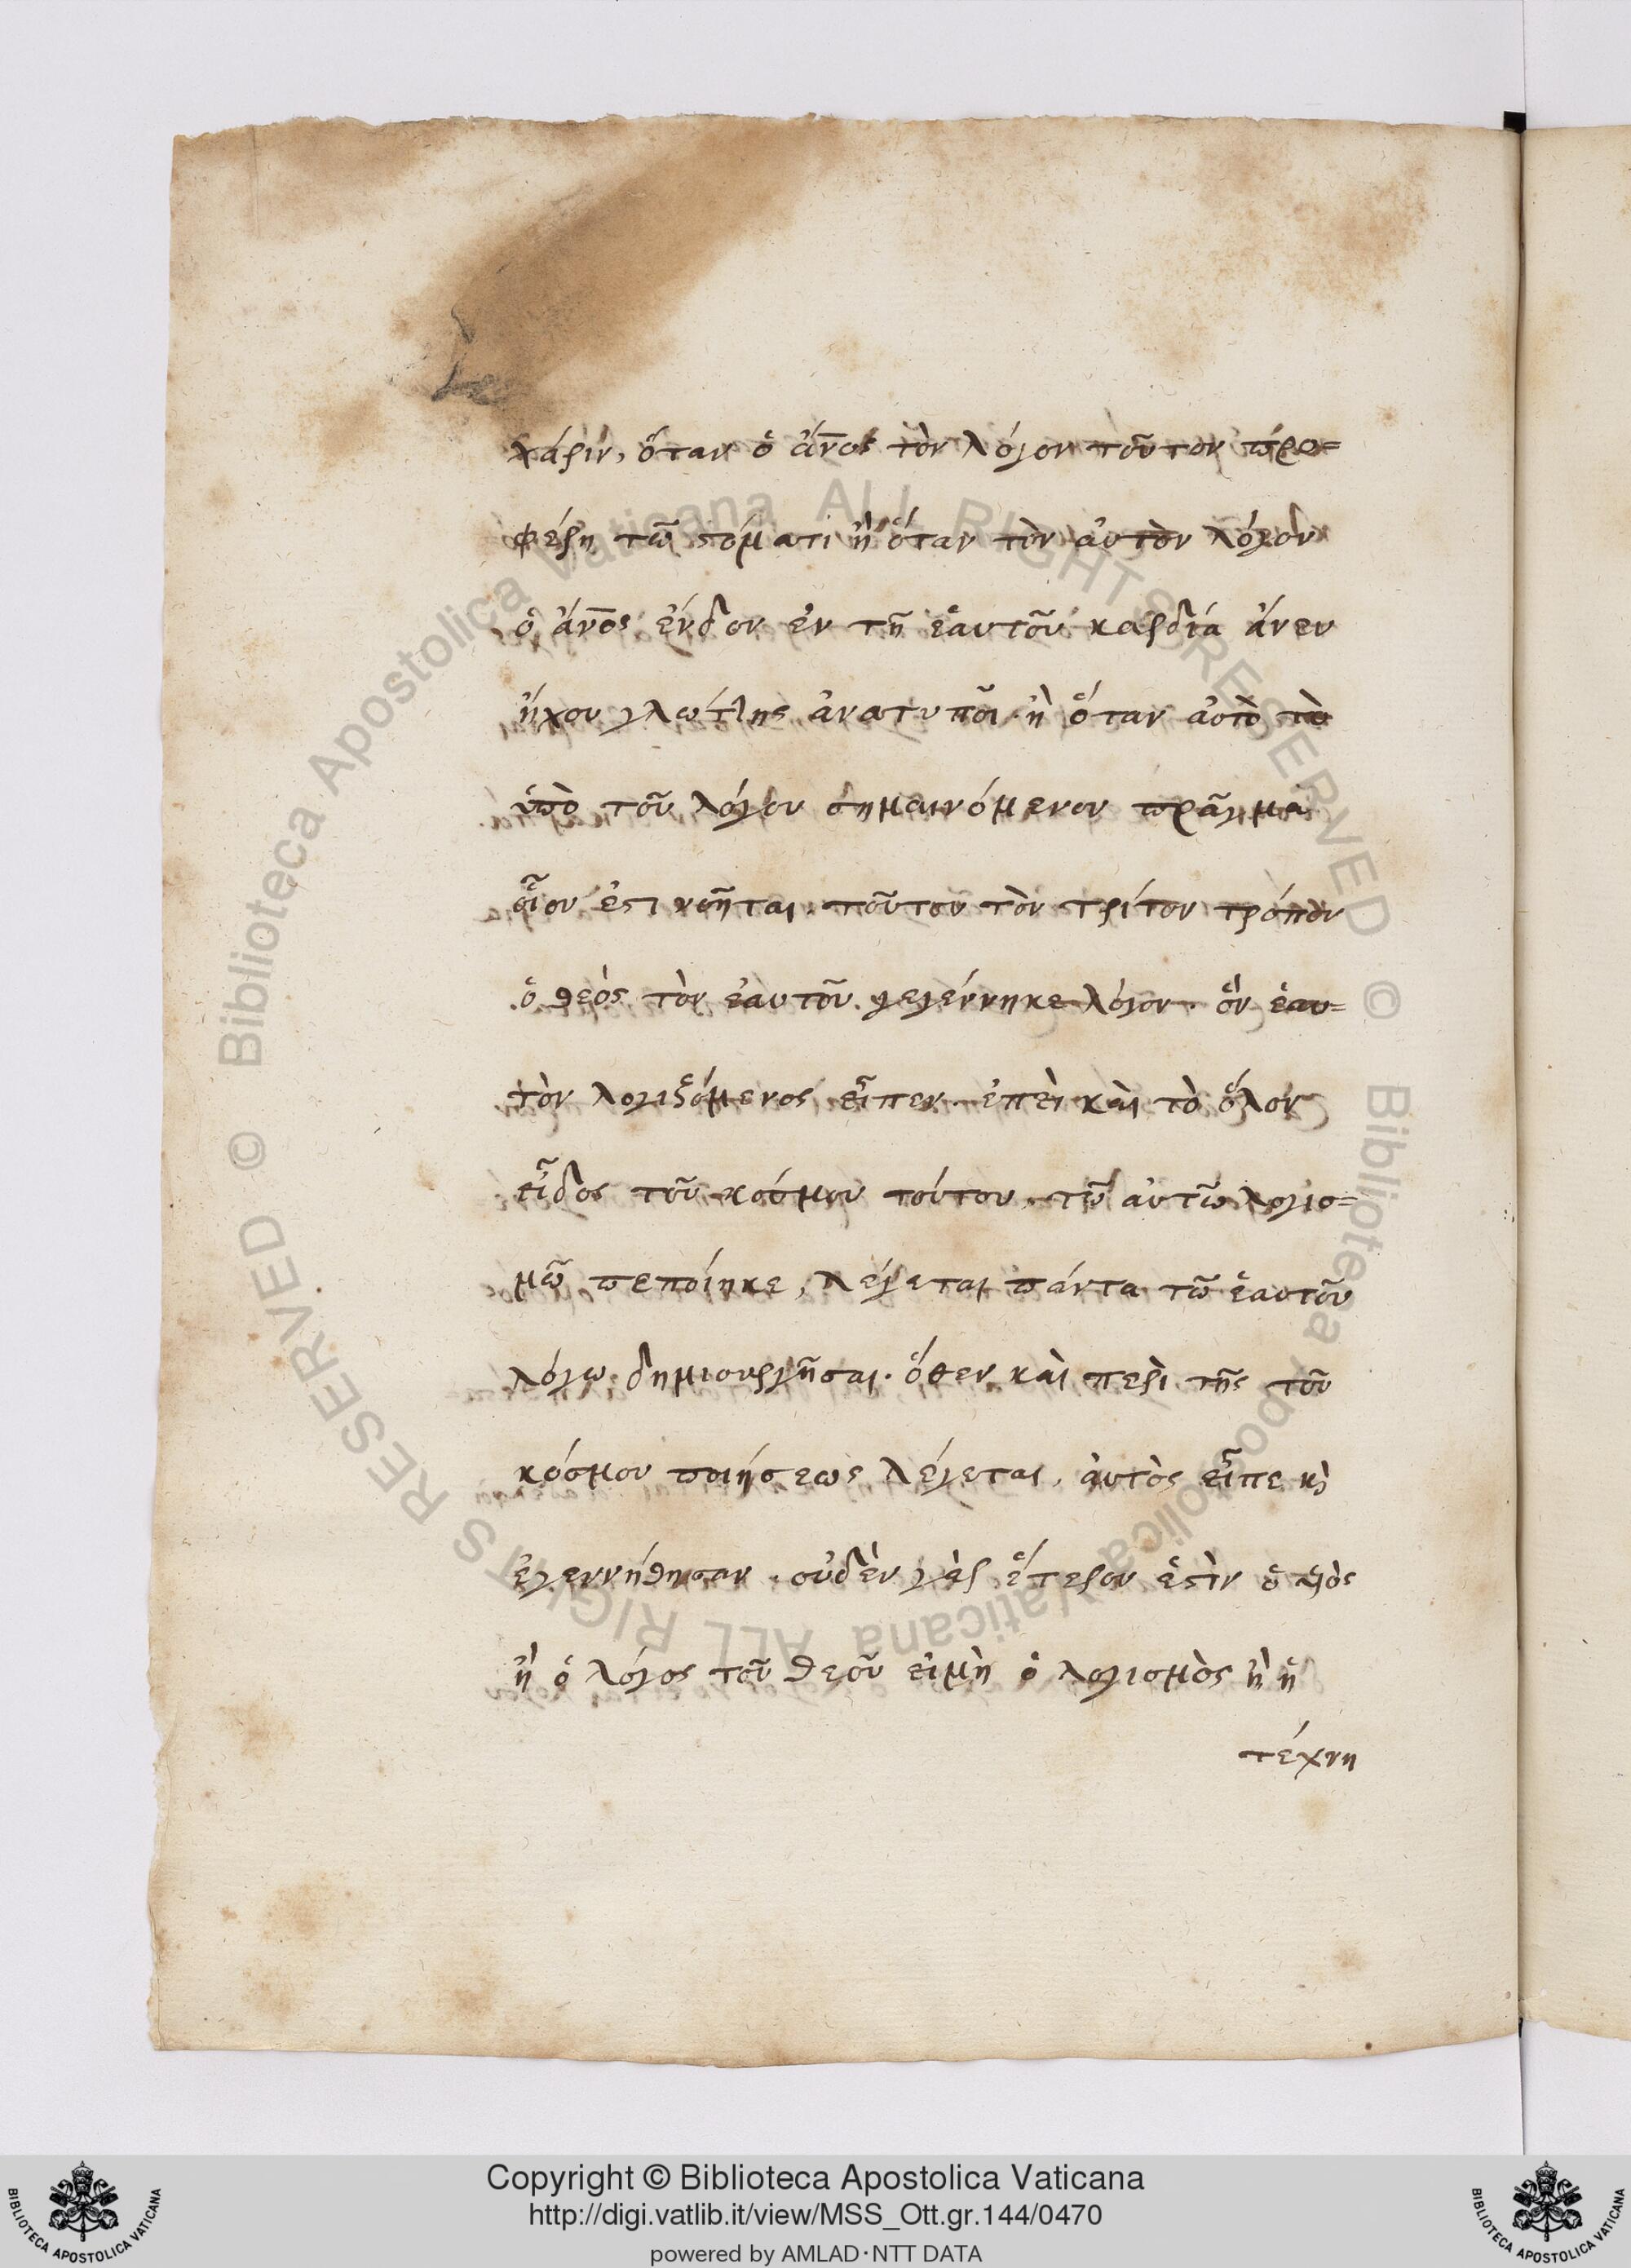 χάριν, ὅταν ὁ ἄν̅ος τὸν λόγον τοῦτον προ=
φέρη τῶ στόματι ἢ ὅταν τὸν αὐτὸν λόγον
ὁ ἄν̅ος ἔνδον ἐν τῆ ἑαυτοῦ καρδία ἄνευ
ἤχου γλώττης ἀνατυποῖ. ἢ ὅταν αὐτὸ τὸ
ὑπὸ τοῦ λόγου σημαινόμενον πρᾶγμα
οἷον ἐστὶ νοῆται. τοῦτον τὸν τρίτον τρόπον
ὁ θεὸς τὸν ἑαυτοῦ γεγέννηκε λόγον. ὃν ἑαυ=
τὸν λογιζόμενος εἶπεν. ἐπεὶ καὶ τὸ ὅλον
εἶδος τοῦ κόσμου τούτου, τῶ αὐτῶ λογισ=
μῶ πεποίηκε, λέγεται πάντα τῶ ἑαυτοῦ
λόγω δημιουργῆσαι. ὅθεν καὶ περὶ τῆς τοῦ
κόσμου ποιήσεως λέγεται, αὐτὸς εἶπε κὶ
ἐγεννήθησαν. οὐδὲν γὰρ ἕτερον ἐστὶν ὁ υἱὸς
ἢ ὁ λόγος τοῦ θεοῦ εἰμὴ ὁ λογισμὸς ἢ ἡ
τέχνη
© Biblioteca Apostolica Vaticana ALL RIGHTS RESERVED © Biblioteca Apostolica Vaticana ALL RIGHTS RESERVED
Copyright © Biblioteca Apostolica Vaticana
http://digi.vatlib.it/view/MSS_Ott.gr.144/0470
powered by AMLAD·NTT DATA
BIBLIOTECA APOSTOLICA VATICANA
BIBLIOTECA APOSTOLICA VATICANA